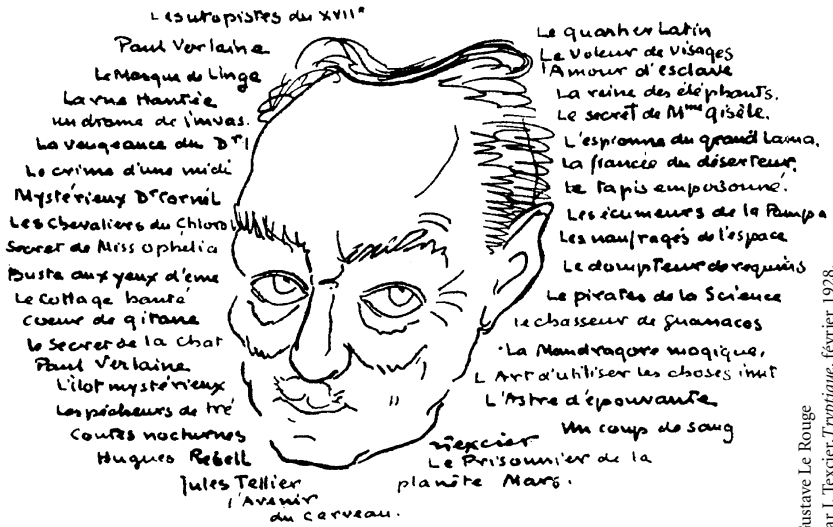 Les utopistes du XVIIe
Paul Verlaine
Le Masque de Linge
La rue Hantée
un drame de l'invas.
La vengeance du Dr I
Le crime d'une midi
Mystérieux Dr Cornél
Les Chevaliers du Chloro
Secret de Miss Ophelia
Buste aux yeux d'eme
Le Cottage hanté
Cœur de gitane
Le Secret de la Chat
Paul Verlaine
L'ilot mystérieux
Les pêcheurs de tré
Contes nocturnes
Hugues Rebell
Jules Tellier
l'Avenir
du Cerveau.
Le quartier Latin
Le Voleur de Visages
l'Amour d'esclave
La reine des éléphants.
Le secret de Mme Gisèle.
L'espionne du grand Lama.
La fiancée du déserteur.
Le tapis empoisonné.
Les écumeurs de la Pampa
Les naufragés de l'espace
Le dompteur de requins
Le pirates de la Science
Le chasseur de Guanacos
La Mandragore magique.
L'Art d'utiliser les choses inut
L'Astre d'épouvante
Un coup de sang
Texcier
Le Prisonnier de la
planète Mars.
Gustave Le Rouge
par J. Texcier, Tryptique, février 1928.